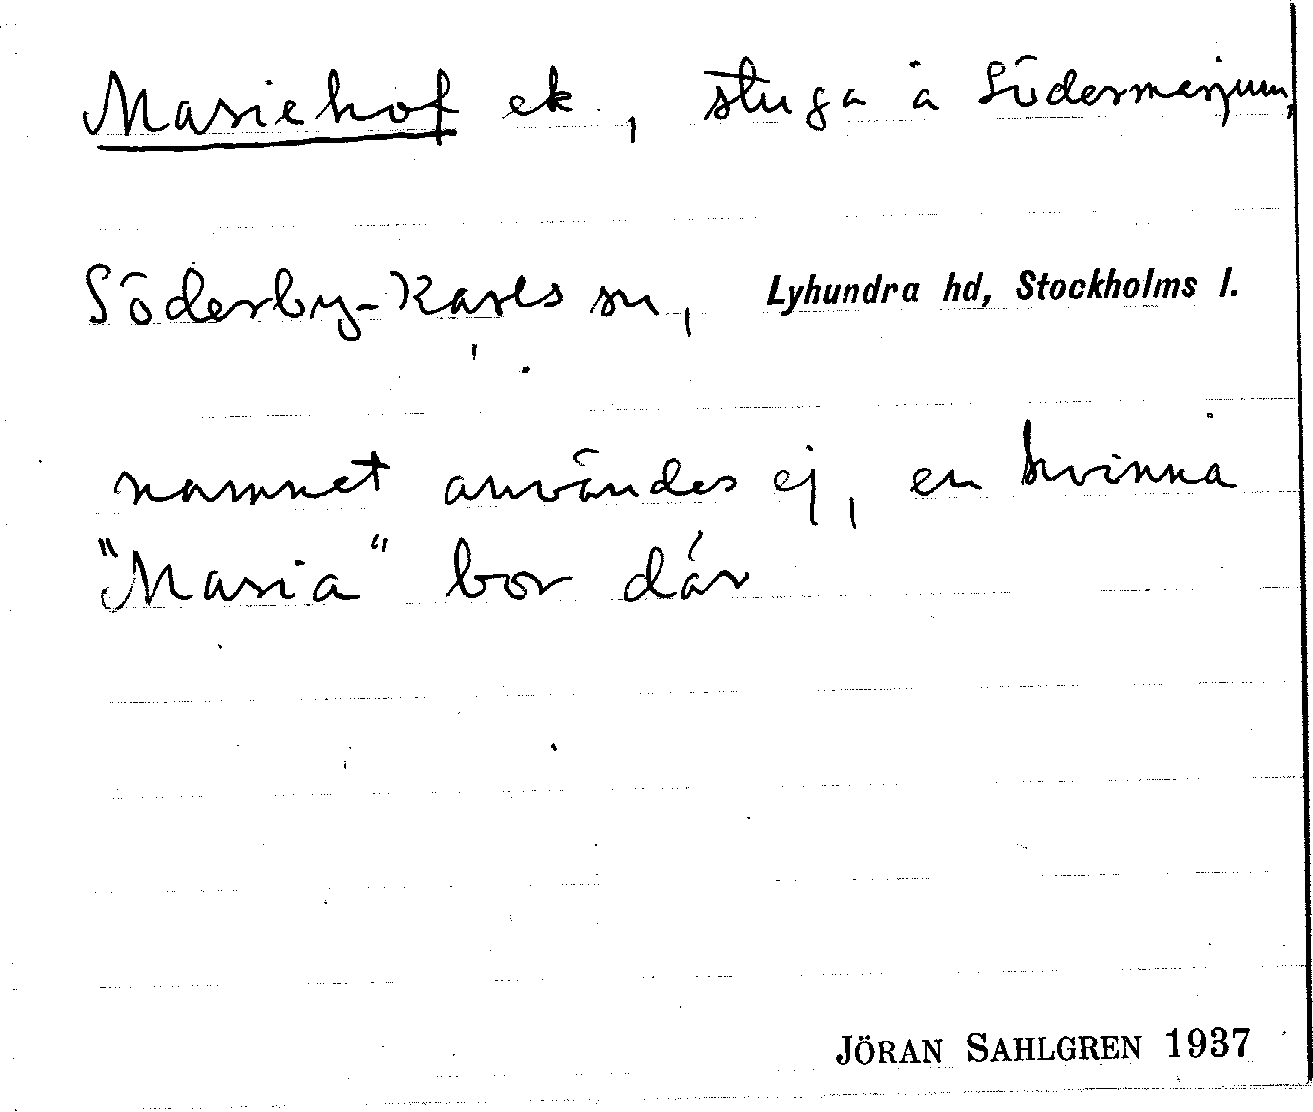 Mariehof ek, stuga å Södermerjum,
Söderby-Karls sn, Lyhundra hd, Stockholms l.
namnet användes ej, en kvinna
"Maria" bor där
JÖRAN SAHLGREN 1937